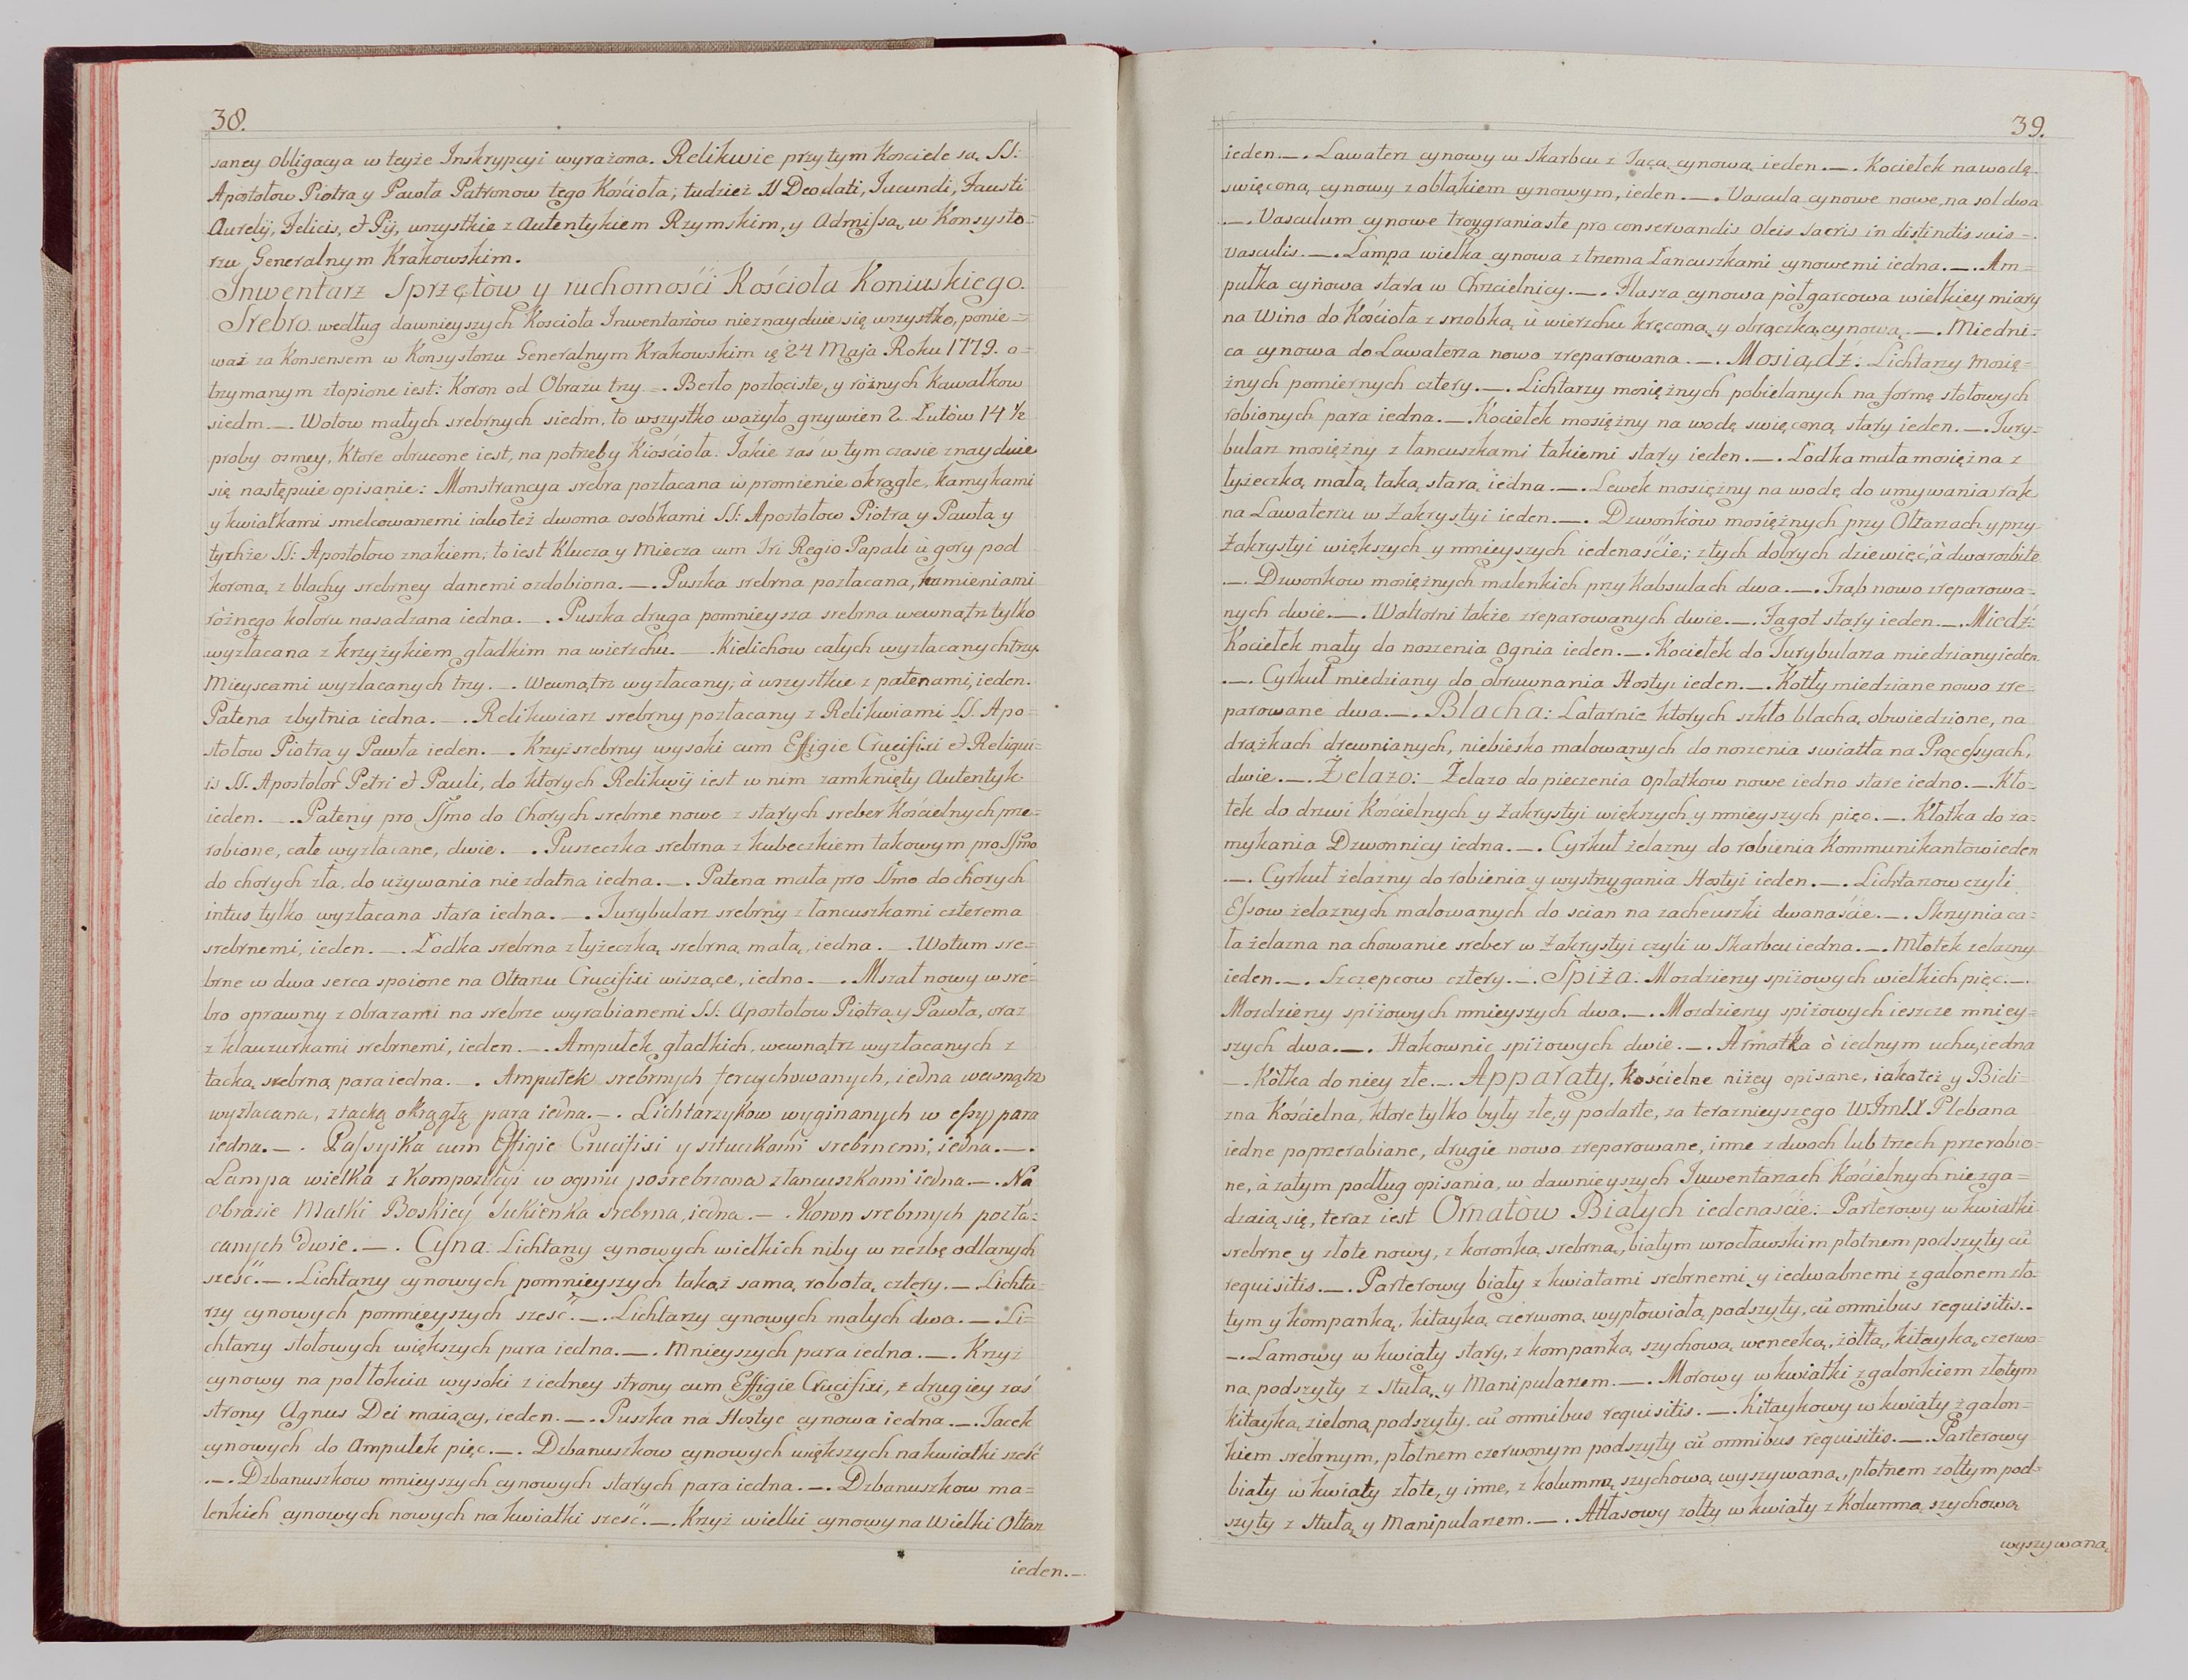 38.
saney obligacya w teyże Inskrypcyi wyrażona. Relikwie przy tym Kosciele są SS:
Apostołow Piotra y Pawła Patronow tego Kościoła; tudzież SS Deodati, Jucundi, Fausti
Aurelij, Felicis, et Pij, wszystkie z Autentykiem Rzymskim, y Admissą w Konsysto=
rzu Generalnym Krakowskim.
Inwentarz Sprzętów y ruchomośći Kościoła Koniuskiego.
Srebro według dawnieyszych Kosciola Inwentarzòw nieznayduie się wszystko, ponie=
waż za Konsensem w Konsystorzu Generalnym Krakowskim 24 Maja Roku 1779. o=
trzymanym ztopione iest: Koron od Obrazu trzy _. Berło pozłociste, y różnych Kawałkow
siedm._. Wotow małych srebrnych siedm, to wszystko ważyło grzywien 2. Łutòw 14 ½
proby osmey, Ktore obrucone iest, na potrzeby Kiościoła. Jakie zaś w tym czasie znayduie
się następuie opisanie: Monstrancya srebra pozłacana w promienie okrągłe, kamykami
y kwiatkami smelcowanemi iako też dwoma osobkami SS: Apostołow Piotra y Pawła y
tychże SS: Apostołow znakiem; to iest Klucza y Miecza cum Tri Regio Papali ù gory pod
koroną z blachy srebrney danemi ozdobiona._. Puszka srebrna pozłacana, kamieniami
ròżnego koloru nasadzana iedna._. Puszka druga pomnieysza srebrna wewnątrz tylko
wyzłacana z krzyżykiem gładkim na wierzchu._. Kielichow całych wyzłacanych trzy.
Mieyscami wyzłacanych trzy._. Wewnątrz wyzłacany, à wszystkie z patenami, ieden.
Patena zbytnia iedna._. Relikwiarz srebrny pozłacany z Relikwiami SS. Apo=
stołow Piotra y Pawła ieden._. Krzyż srebrny wysoki cum Effigie Crucifixi et Reliqui=
is SS. Apostolor Petri et Pauli, do ktorych Relikwij iest w nim zamknięty Autentyk
ieden._. Pateny pro SSmo do Chorych srebrne nowe z starych sreber Kościelnych prze=
robione, całe wyzłacane, dwie._. Puszeczka srebrna z kubeczkiem takowym pro SSmo
do chorych zła, do używania niezdatna iedna._. Patena mała pro SSmo do chorych
intus tylko wyzłacana stara iedna._. Turybularz srebrny z łancuszkami czterema
srebrnemi, ieden._. Łodka srebrna z łyżeczką srebrną małą, iedna._. Wotum sre=
brne w dwa serca spoione na Ołtarzu Crucifixi wiszące, iedno._. Mszał nowy w sre=
bro oprawny z obrazami na srebrze wyrabianemi SS: Apostołow Piotra y Pawła, oraz
z klauzurkami srebrnemi, ieden._. Ampułek gładkich, wewnątrz wyzłacanych z
tacką srebrną para iedna._. Ampułek srebrnych fercychowanych, iedna wewnątrz
wyzłacana, z tacką okrągłą para iedna._. Lichtarzykow wyginanych w essy para
iedna._. Passyika cum Effigie Crucifixi y sztuczkami srebrnemi, iedna._.
Lampa wielka z Kompozycyi w ogniu posrebrzana z łancuszkami iedna._. Na
obrazie Matki Boskiey Sukienka srebrna, iedna._. Koron srebrnych pozła=
canych dwie._. Cyna. Lichtarzy cynowych wielkich niby w rzezbę odlanych
sześć._. Lichtarzy cynowych pomnieyszych takąż samą robotą, cztery._. Lichta=
rzy cynowych pomnieyszych sześć._. Lichtarzy cynowych małych dwa._. Li=
chtarzy stołowych większych para iedna._. Mnieyszych para iedna._. Krzyż
cynowy na poł łokcia wysoki z iedney strony cum Effigie Crucifixi, z drugiey zaś
strony Agnus Dei maiący, ieden._. Puszka na Hostye cynowa iedna._. Tacek
cynowych do Ampułek pięc._. Dzbanuszkow cynowych większych na kwiatki sześć
_. Dzbanuszkow mnieyszych cynowych starych para iedna._. Dzbanuszkow ma=
lenkich cynowych nowych na kwiatki sześć._. Krzyż wielki cynowy na Wielki Ołtarz
ieden._
39.
ieden._. Lawaterz cynowy w Skarbcu z Tacą cynową ieden._. Kociełek na wodę
swięconą cynowy z obłąkiem cynowym, ieden._. Vascula cynowe nowe, na sol dwa
_. Vasculum cynowe troygraniaste pro conservandis Oleis Sacris in distinctis suis=
vasculis._. Lampa wielka cynowa z trzema Łancuszkami cynowemi iedna._. Am=
pułka cynowa stara w Chrzcielnicy._. Flasza cynowa pòłgarcowa wielkiey miary
na Wino do Kościoła z srzobką ù wierzchu kręconą y obrączką cynową._. Miedni=
ca cynowa do Lawaterza nowo zreparowana._. Mosiądź: Lichtarzy mosię=
żnych pomiernych cztery._. Lichtarzy mosiężnych pobielanych na formę stołowych
robionych para iedna._. Kociełek mosiężny na wodę swięconą stary ieden._. Tury=
bularz mosiężny z łancuszkami takiemi stary ieden._. Łodka mała mosiężna z
łyżeczką małą taką starą iedna._. Lewek mosiężny na wodę do umywania rąk
na Lawaterzu w Zakrystyi ieden._. Dzwonkòw mosiężnych przy Ołtarzach y przy
Zakrystyi większych y mnieyszych iedenaście; z tych dobrych dziewięć, à dwa rozbite
_. Dzwonkow mosiężnych malenkich przy Kabsulach dwa._. Trąb nowo zreparowa=
nych dwie._. Waltorni także zreparowanych dwie._. Fagot stary ieden._. Miedź:
Kociełek mały do noszenia ognia ieden._. Kociełek do Turybularza miedziany ieden
_. Cyrkuł miedziany do obruwnania Hostyi ieden._. Kotły miedziane nowo zre=
parowane dwa._. Blacha: Latarnie ktorych szkło blachą, obwiedzione, na
drążkach drewnianych, niebiesko malowanych do noszenia swiatła na Processyach,
dwie._. Żelazo: Żelazo do pieczenia opłatkow nowe iedno stare iedno._. Kło=
tek do drzwi Kościelnych y Zakrystyi większych y mnieyszych pięc._. Kłotka do za=
mykania Dzwonnicy iedna._. Cyrkuł żelazny do robienia Kommunikantow ieden
_. Cyrkuł żelazny do robienia y wystrzygania Hostyi ieden._. Lichtarzow czyli
Essow żelaznych malowanych do scian na zacheuszki dwanaście._. Skrzynia ca=
ła żelazna na chowanie sreber w Zakrystyi czyli w Skarbcu iedna._. Młotek zelazny
ieden._. Szczepcow cztery._. Spiża: Mozdzierzy spiżowych wielkich pięc._.
Mozdzierzy spiżowych mnieyszych dwa._. Mozdzierzy spiżowych ieszcze mniey=
szych dwa._. Hakownic spiżowych dwie._. Armatka ò iednym uchu, iedna
_. Kòłka do niey złe._. Apparaty, Kościelne niżey opisane, iakoteż y Bieli=
zna Kościelna, ktore tylko były złe, y podarte, za teraznieyszego WJmXX Plebana
iedne poprzerabiane, drugie nowo zreparowane, inne z dwoch lub trzech przerobio=
ne, à zatym podług opisania, w dawnieyszych Inwentarzach Kościelnych niezga=
dzaią się, teraz iest Ornatòw Białych iedenaście. Parterowy w kwiatki
srebrne y złote nowy, z koronką srebrną, białym wrocławskim płotnem podszyty cũ
requisitis._. Parterowy biały z kwiatami srebrnemi y iedwabnemi z galonem zło=
tym y kompanką, kitayką czerwoną wypłowiałą podszyty, cũ omnibus requisitis._
_. Lamowy w kwiaty stary, z kompanką szychową wenecką, żółtą, kitayką, czerwo=
ną podszyty z Stułą y Manipularzem._. Morowy w kwiatki z galonkiem złotym
kitayką zieloną podszyty, cũ omnibus requisitis._. Kitaykowy w kwiaty z galon=
kiem srebrnym, płotnem czerwonym podszyty cũ omnibus requisitis._. Parterowy
biały w kwiaty złote, y inne, z kolumną szychową wyszywaną, płotnem zołtym pod=
szyty z Stułą y Manipularzem._. Atłasowy zołty w kwiaty z Kolumną szychową
wyszywaną